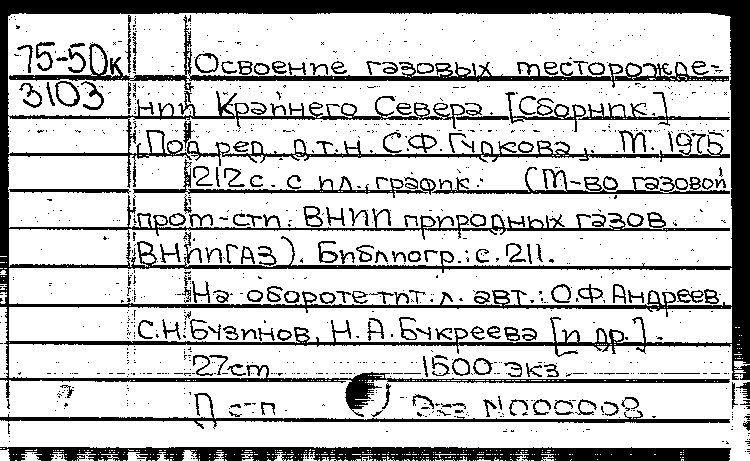 75-50к Освоение газовых месторожде-
3103 нии Крайнего Севера [Сборник.]
,Под ред. д.т.н. С.Ф.Гудкова,. М.,1975
212с. с ил., график. (М-во газовой
пром-сти. ВНИИ природных газов.
ВНИИГАЗ). Библиогр.: с. 211.
На обороте тит. л. авт.: О.Ф.Андреев,
С.Н.Бузинов, Н.А.Букреева [и др.].
27см. 1500 экз.
П с-п Экз N000008.